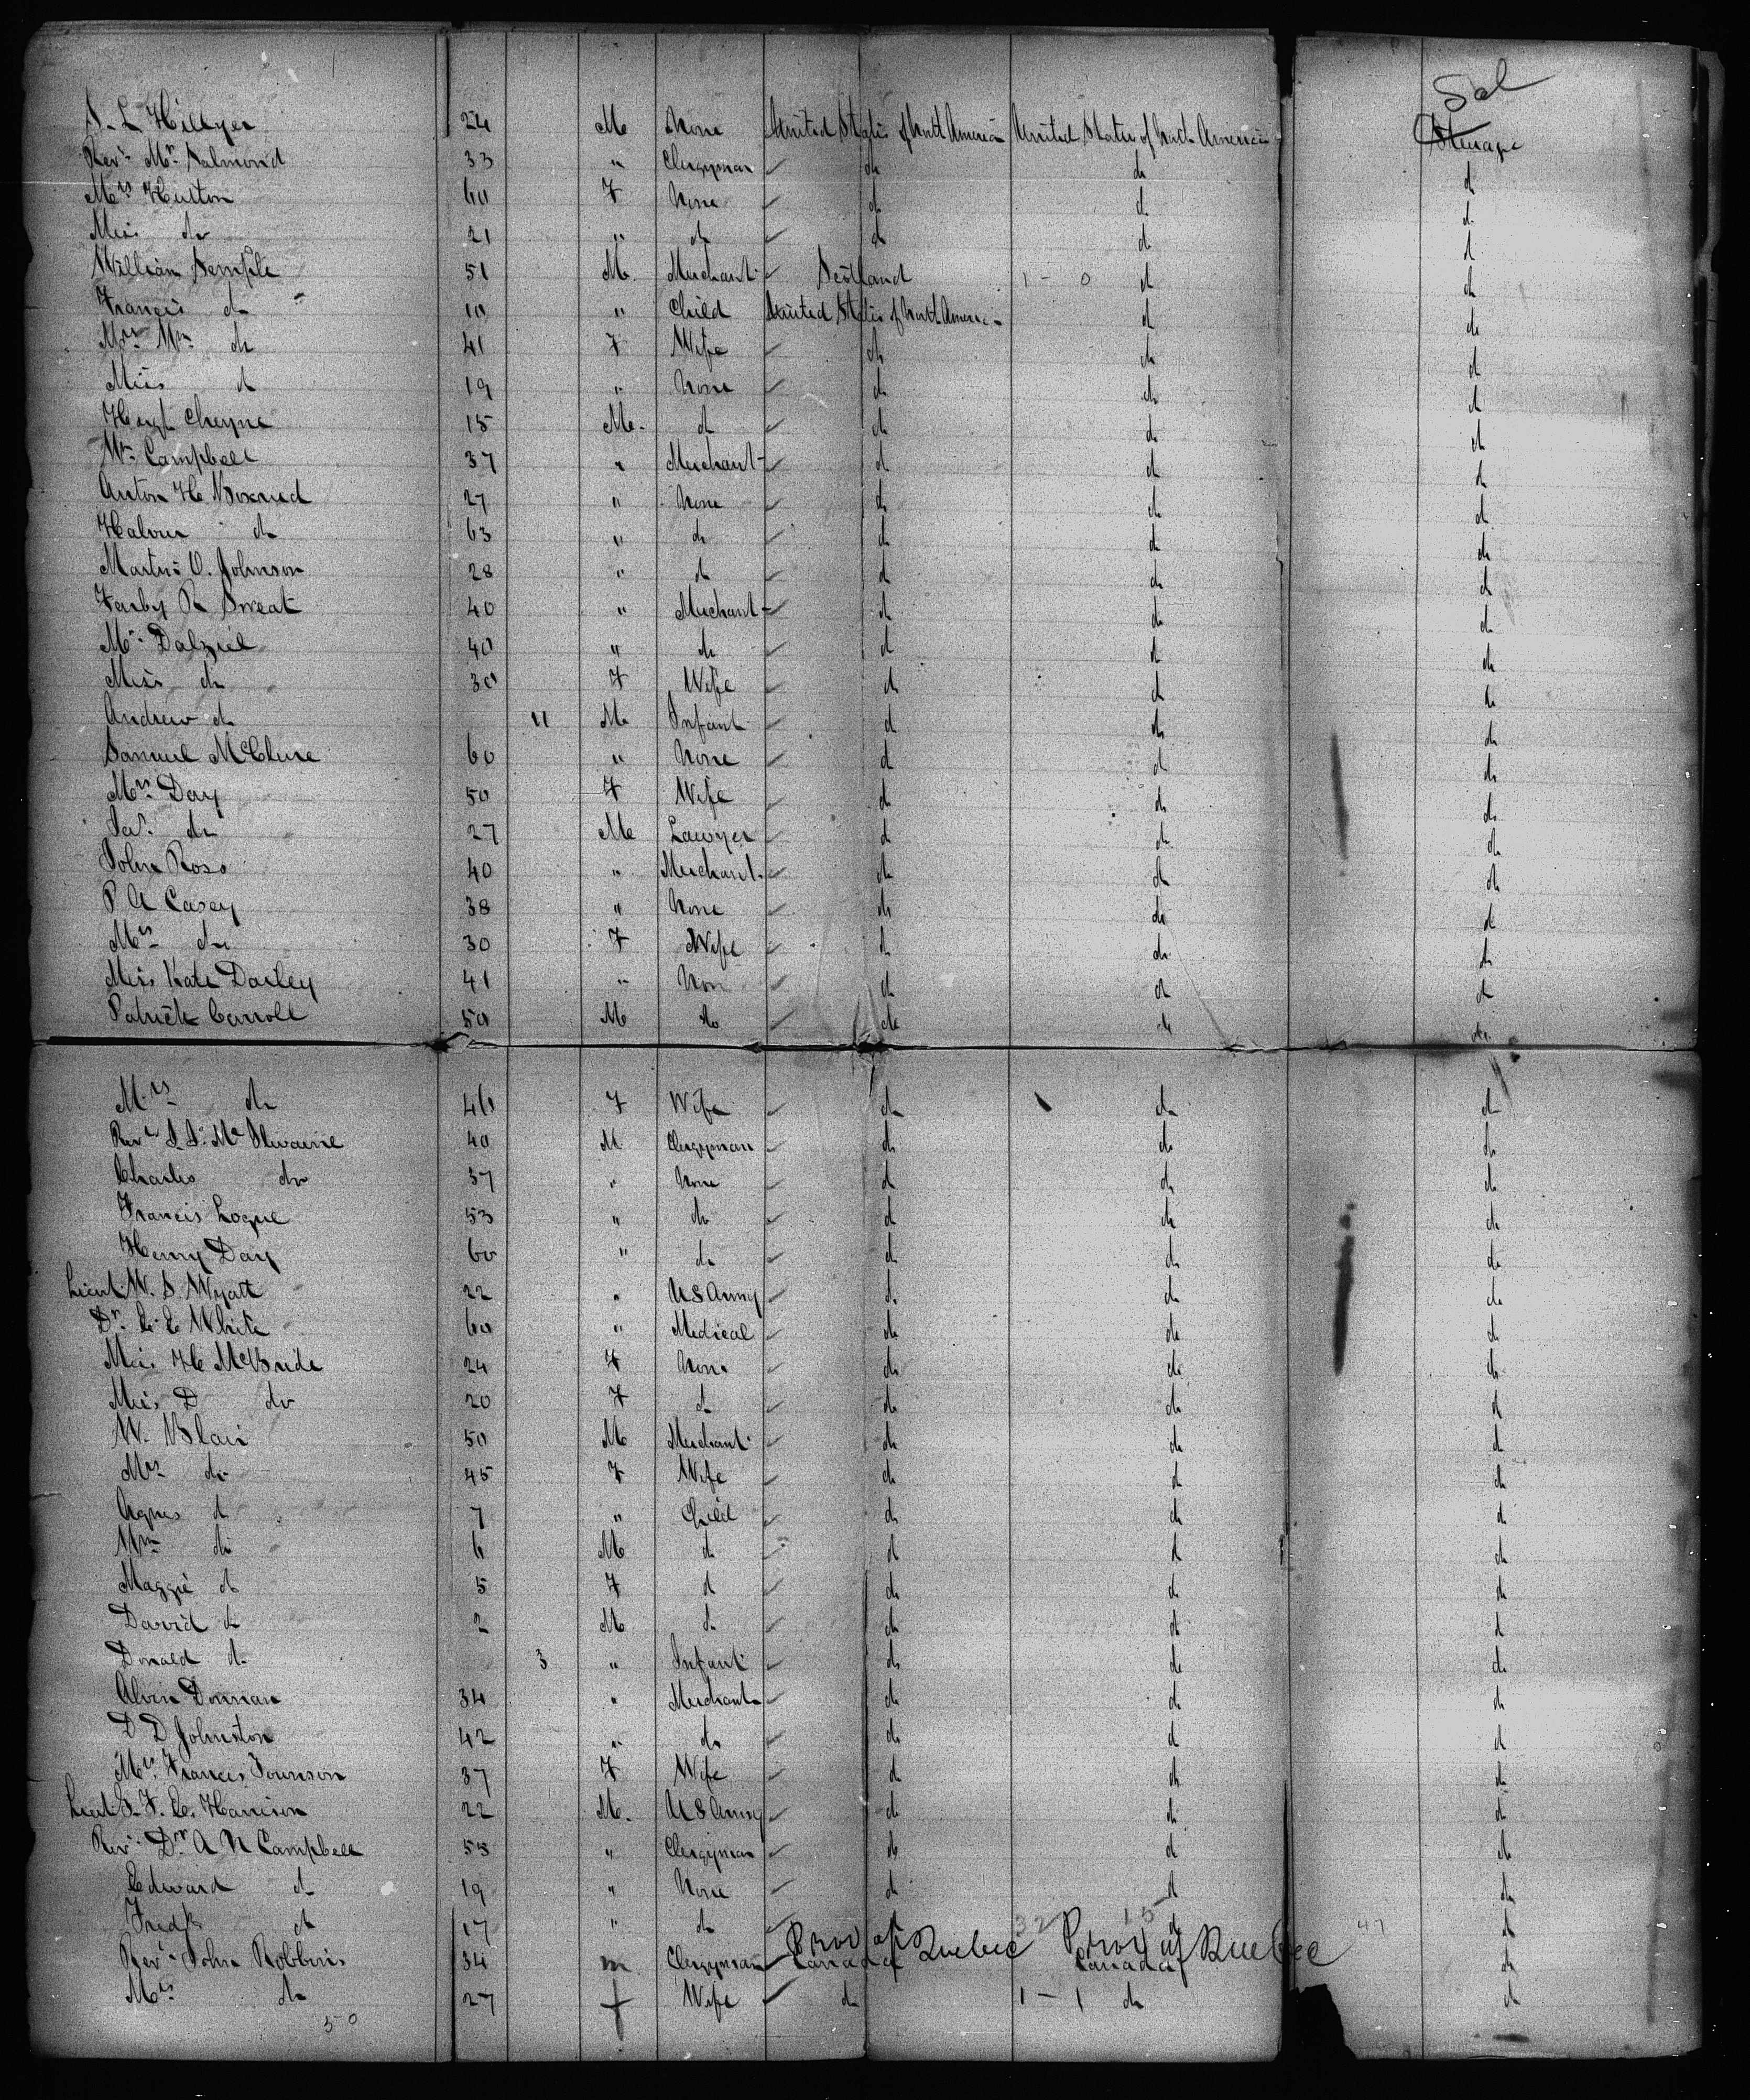 Sal
S. L. Hillyer 24 M None United States of North America United States of North America Steerage
Revd. Mr. Salmond 33 " Clergyman do do do
Mrs Hutton 60 F None do do do
Miss do 21 " do do do do
William Semple 51 M. Merchant Scotland 1 - 0 do do
Francis do 10 " Child United States of North America do do
Mrs Wm do 41 F Wife do do do
Miss do 19 " None do do do
Hugh Cheyne 15 M. do do do do
Wm Campbell 37 " Merchant do do do
Anton H 27 " None do do do
Halvor do 63 " do do do do
Martin O. Johnson 28 " do do do do
R Sweat 40 " Merchant do do do
Mr. Dalziel 40 " do do do do
Miss do 30 F Wife do do do
Andrew do 11 M Infant do do do
Samuel McClure 60 " None do do do
Mrs. Day 50 F Wife do do do
Jas. do 27 M Lawyer do do do
John Ross 40 " Merchant do do do
P A Casey 38 " None do do do
Mrs do 30 F Wife do do do
Miss Kate Dailey 41 " Non do do do
Patrick Carroll 50 M do do do do
Mrs do 46 F Wife do do do
Revd 40 M Clergyman do do do
Charles do 37 " None do do do
Francis Logue 53 " do do do do
Henry Day 60 " do do do do
Lieut W. S. Wyatt 22 " U S Army do do do
Dr. E. E White 60 " Medical do do do
Miss H McBride 24 F None do do do
Miss D do 20 F do do do do
W. Blair 50 M Merchant do do do
Mrs do 45 F Wife do do do
Agnes do 7 " Child do do do
Wm do 6 M do do do do
Maggie do 5 F do do do do
David do 2 M do do do do
Donald do 3 " Infant do do do
Alvin Dornan 34 " Merchant do do do
D D Johnston 42 " do do do do
Mrs. Francis 37 F Wife do do do
Lieut G. F. E. Harrison 22 M. U S Army do do do
Revd. Dr. A N Campbell 55 " Clergyman do do do
Edward do 19 " None do do do
Fredk do 17 " do do 32 15 do 47 do
Revd. John Robbins 34 m Clergyman Prov of Quebec Canada Prov of Quebec Canada do
Mrs do 27 f Wife do 1 - 1 do do
50